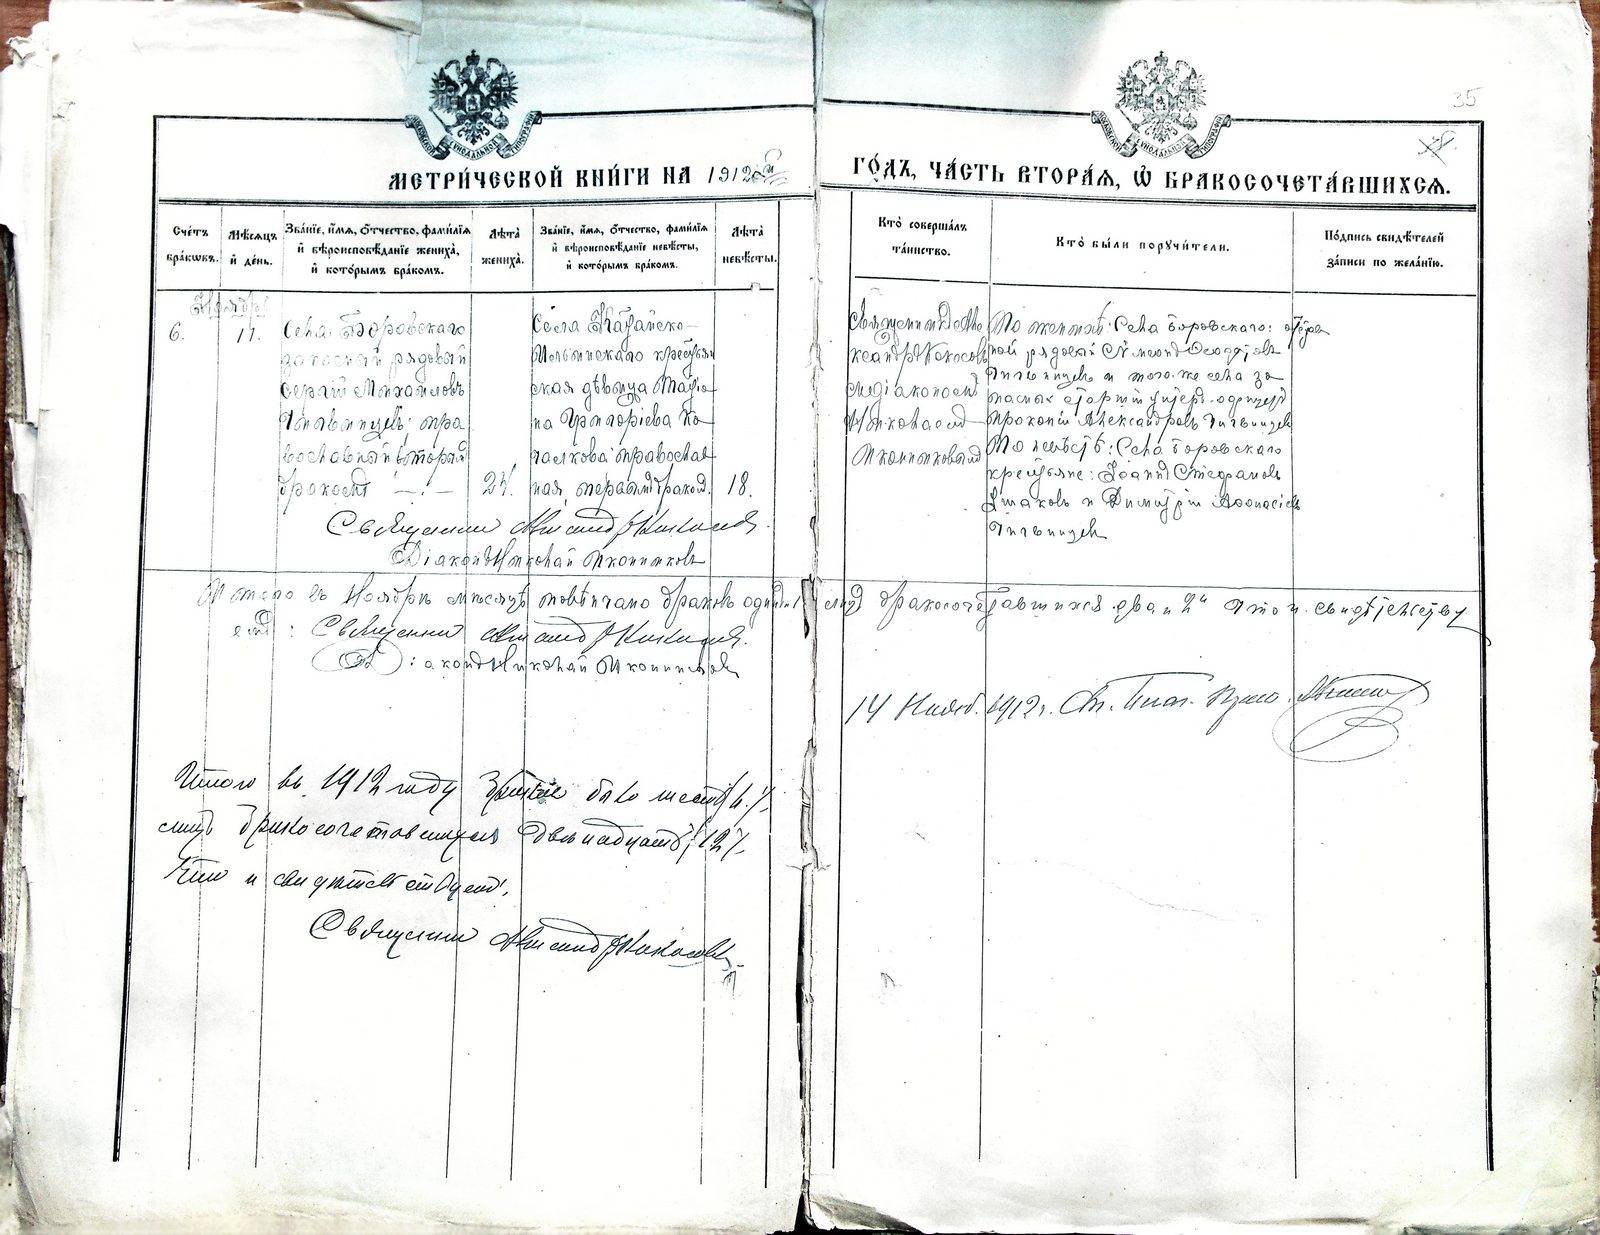 35
МЕТРИ́ЧЕСКОЙ КНИ́ГИ НА 1912ый
ГО́ДЪ, ЧА́СТЬ ВТОРА́Я, Ѽ БРАКОСОЧЕТА́ВШИХСЯ.
Сче́тъ бра́кωвъ.
Мѣ́сяцъ и҆ де́нь.
Зва́нїе, и҆́мя, о҆́тчество, фами́лїя
и҆ вѣроисповѣ́данїе жениха̀,
и҆ кото́рымъ бра́комъ.
Лѣ́та жениха̀.
Зва́нїе, и҆́мя, о҆́тчество, фами́лїя
и҆ вѣроисповѣ́данїе невѣ́сты,
и҆ кото́рымъ бра́комъ.
Лѣ́та невѣ́сты.
Кто̀ соверша́лъ та́инство.
Кто̀ бы́ли поручи́тели.
По́дпись свидѣ́телей
за́писи по жела́нїю.
Ноября
6.
11.
Села Боровскаго
запасный рядовый
Сергій Михайловъ
пра
вославный, вторый
бракомъ
24.
Села
крестьян
ская дѣвица
на Григоріева Ко
чалкова: православ
ная, первымъ бракомъ.
18.
Священникъ Але
ксандръ Кокосовъ
съ діакономъ
Николаемъ
Иконниковымъ
По женихѣ: Села Боровскаго:
ной рядовый Симеонъ
и того-же села за
пасный старшій унтеръ-офицеръ
Прокопій Александровъ
По невѣстѣ: Села Боровскаго
крестьяне: Іоаннъ Стефановъ
Ушаковъ и Димитрій Аѳонасіевъ
Священникъ Александръ Кокосовъ.
Діаконъ Николай Иконниковъ
Итого въ Ноябрѣ мѣсяцѣ повѣнчано браковъ одинъ 1 лицъ бракосочетавшихся два и 2. Что и свидѣтельству
емъ: Священникъ Александръ Кокосовъ.
Діаконъ Николай Иконниковъ
14 Нояб. 1912 г.
Итого въ 1912 году браковъ было шесть /6./
лицъ бракосочетавшихся двѣнадцать /12/.
Что и свидѣтельствуемъ.
Священникъ Александръ Кокосовъ